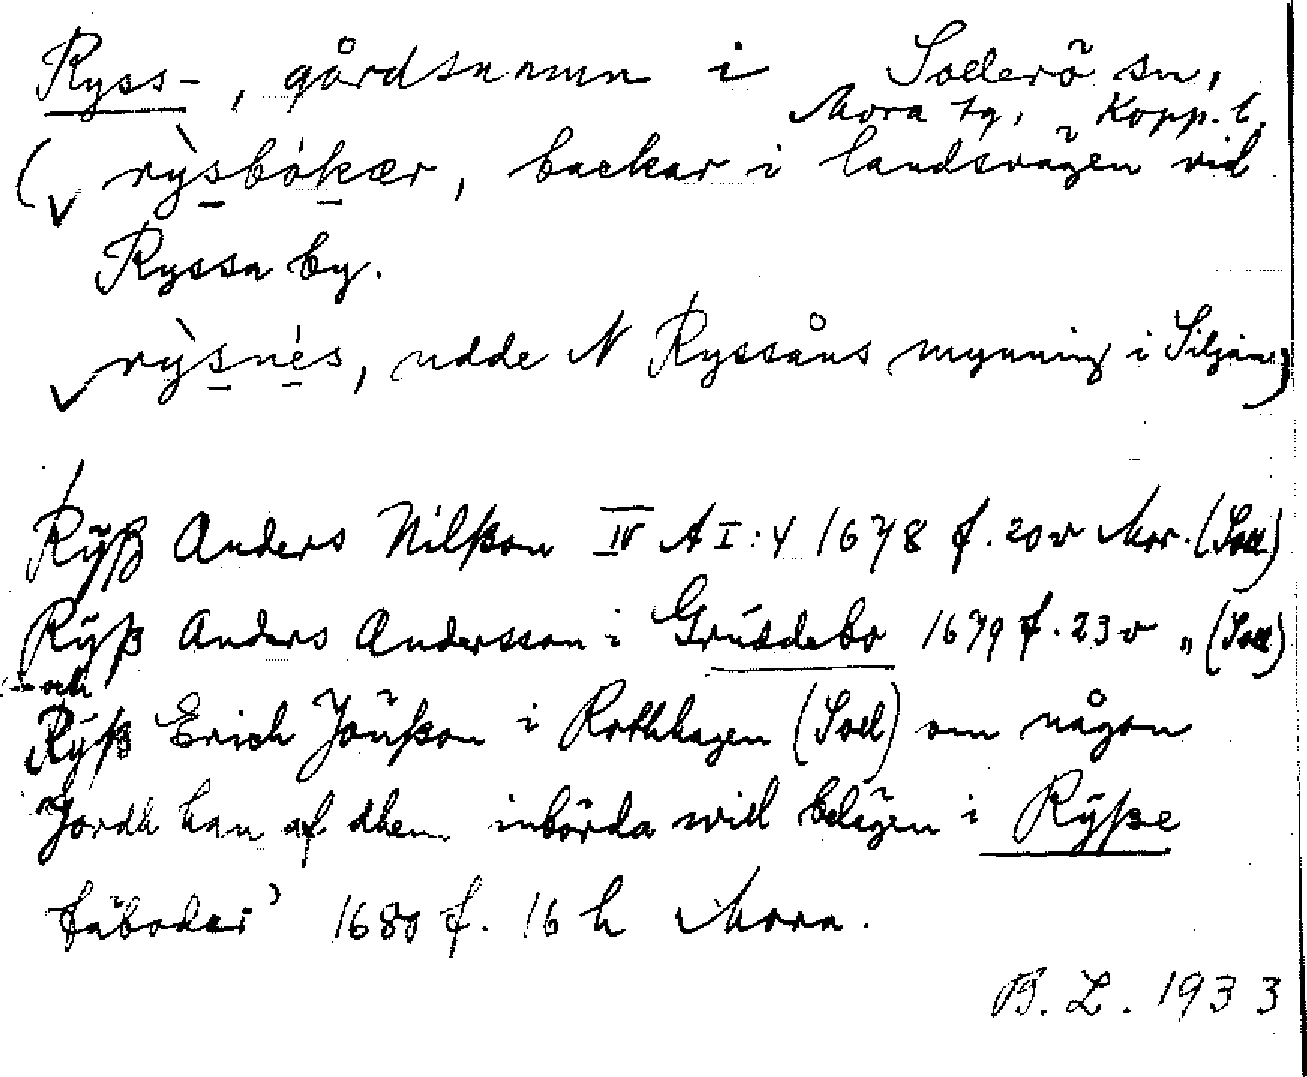 Ryss-, gårdsnamn i Sollerö sn,
Mora tg, Kopp. l.
(rỳsbókær, backar i landsvägen vid
Ryssa by.
rỳsnés, udde N Ryssåns mynning i Siljan)
Rÿß Anders Nilßon IV A I:4 1678 f. 20 v Mor. (Soll)
Rÿß Anders Andersson i Grúdebo 1679 f. 23 v " (Soll)
- och
Rÿß Erich Jönßon i Rothhagen (Soll) om någon
Jordh han af dhem inbörda will belägen i Rÿße
fäboder' 1680 f. 16 h Mora.
B. L. 1933